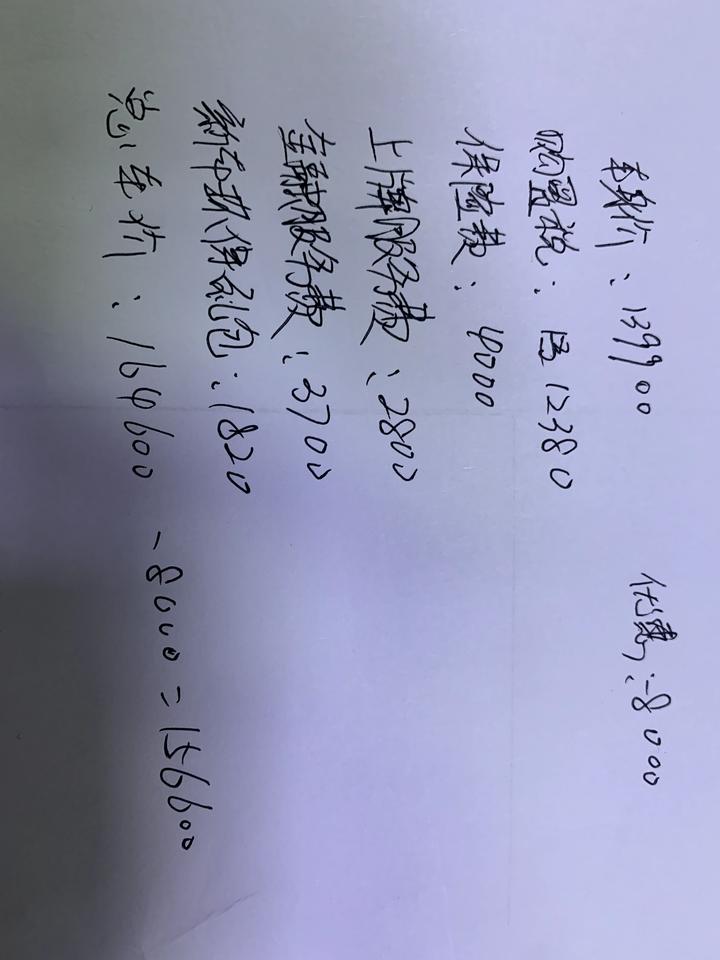 车价：139900 优惠：-8000
购置税：12380
保险费：4000
上牌服务费：2800
金融服务费：3700
新车玻保礼包：1820
总车价：164600 -8000=156600